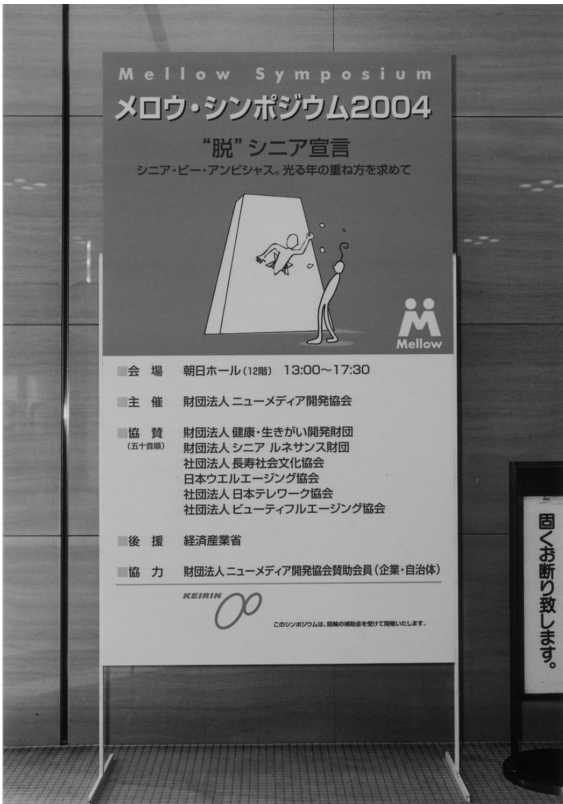 Mellow Symposium
メロウ・シンポジウム2004
“脱”シニア宣言
シニア・ビー・アンビシャス。光る年の重ね方を求めて
Mellow
会場 朝日ホール(12階) 13:00〜17:30
主催 財団法人 ニューメディア開発協会
協賛 財団法人 健康・生きがい開発財団
(五十音順) 財団法人 シニア ルネサンス財団
社団法人 長寿社会文化協会
日本ウエルエージング協会
社団法人 日本テレワーク協会
社団法人 ビューティフルエージング協会
後援 経済産業省
協力 財団法人 ニューメディア開発協会賛助会員(企業・自治体)
KEIRIN
このシンポジウムは、競輪の補助金を受けて開催いたします。
固くお断り致します。